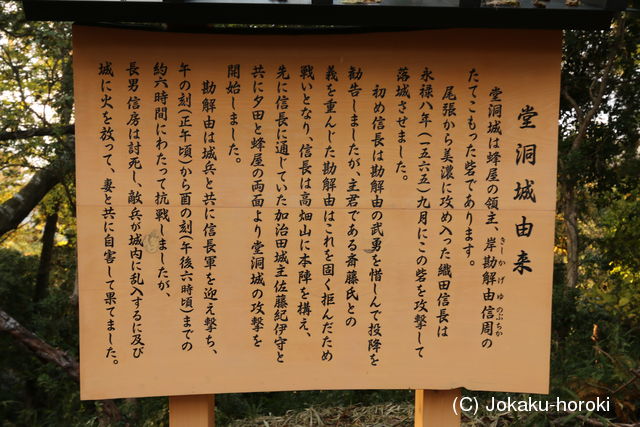 堂洞城由来
堂洞城は蜂屋の領主、岸勘解由信周の
きしかげゆのぶちか
たてこもった砦であります。
尾張から美濃に攻め入った織田信長は
永禄八年(一五六五)九月にこの砦を攻撃して
落城させました。
初め信長は勘解由の武勇を惜しんで投降を
勧告しましたが、主君である斎藤氏との
義を重んじた勘解由はこれを固く拒んだため
戦いとなり、信長は高畑山に本陣を構え、
先に信長に通じていた加治田城主佐藤紀伊守と
共に夕田と蜂屋の両面より堂洞城の攻撃を
開始しました。
勘解由は城兵と共に信長軍を迎え撃ち、
午の刻(正午頃)から酉の刻(午後六時頃)までの
約六時間にわたって抗戦しましたが、
長男信房は討死し、敵兵が城内に乱入するに及び
城に火を放って、妻と共に自害して果てました。
(C) Jokaku-horoki